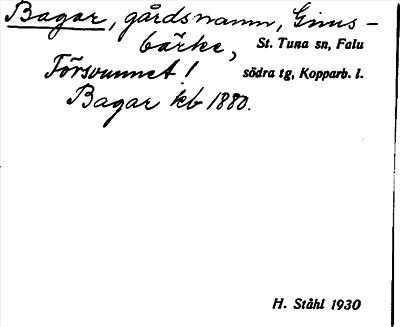 Bagar, gårdsnamn, Ginus-
bärke, St. Tuna sn, Falu
Försvunnet! södra tg, Kopparb. l.
Bagar kb 1880.
H. Ståhl 1930